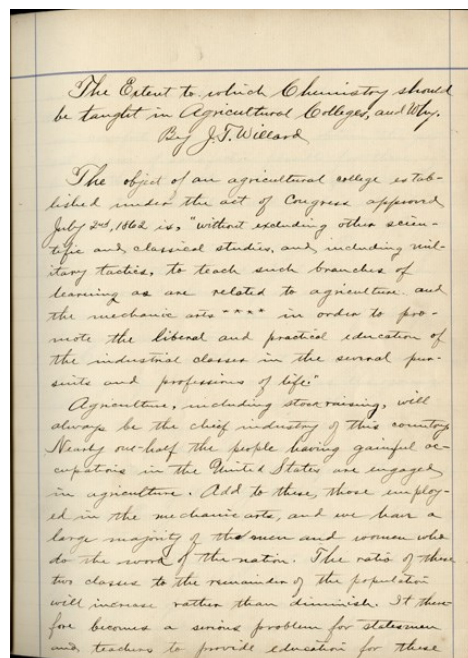 The Extent to which Chemistry should
be taught in Agricultural Colleges, and Why.
By J.T. Willard
The object of an agricultural college estab-
lished under the act of Congress approved
July 2nd, 1862 is, "without excluding other scien-
tific and classical studies, and including mil-
itary tactics, to teach such branches of
learning as are related to agriculture and
the mechanic arts **** in order to pro-
mote the liberal and practical education of
the industrial classes in the several pur-
suits and professions of life."
Agriculture, including stock raising, will
always be the chief industry of this country.
Nearly one-half the people having gainful oc-
cupations in the United States are engaged
in agriculture. Add to these, those employ-
ed in the mechanic arts, and we have a
large majority of the men and women who
do the work of the nation. The ratio of these
two classes to the remainder of the population
will increase rather than diminish. It there-
fore becomes a serious problem for statesmen
and teachers to provide education for these